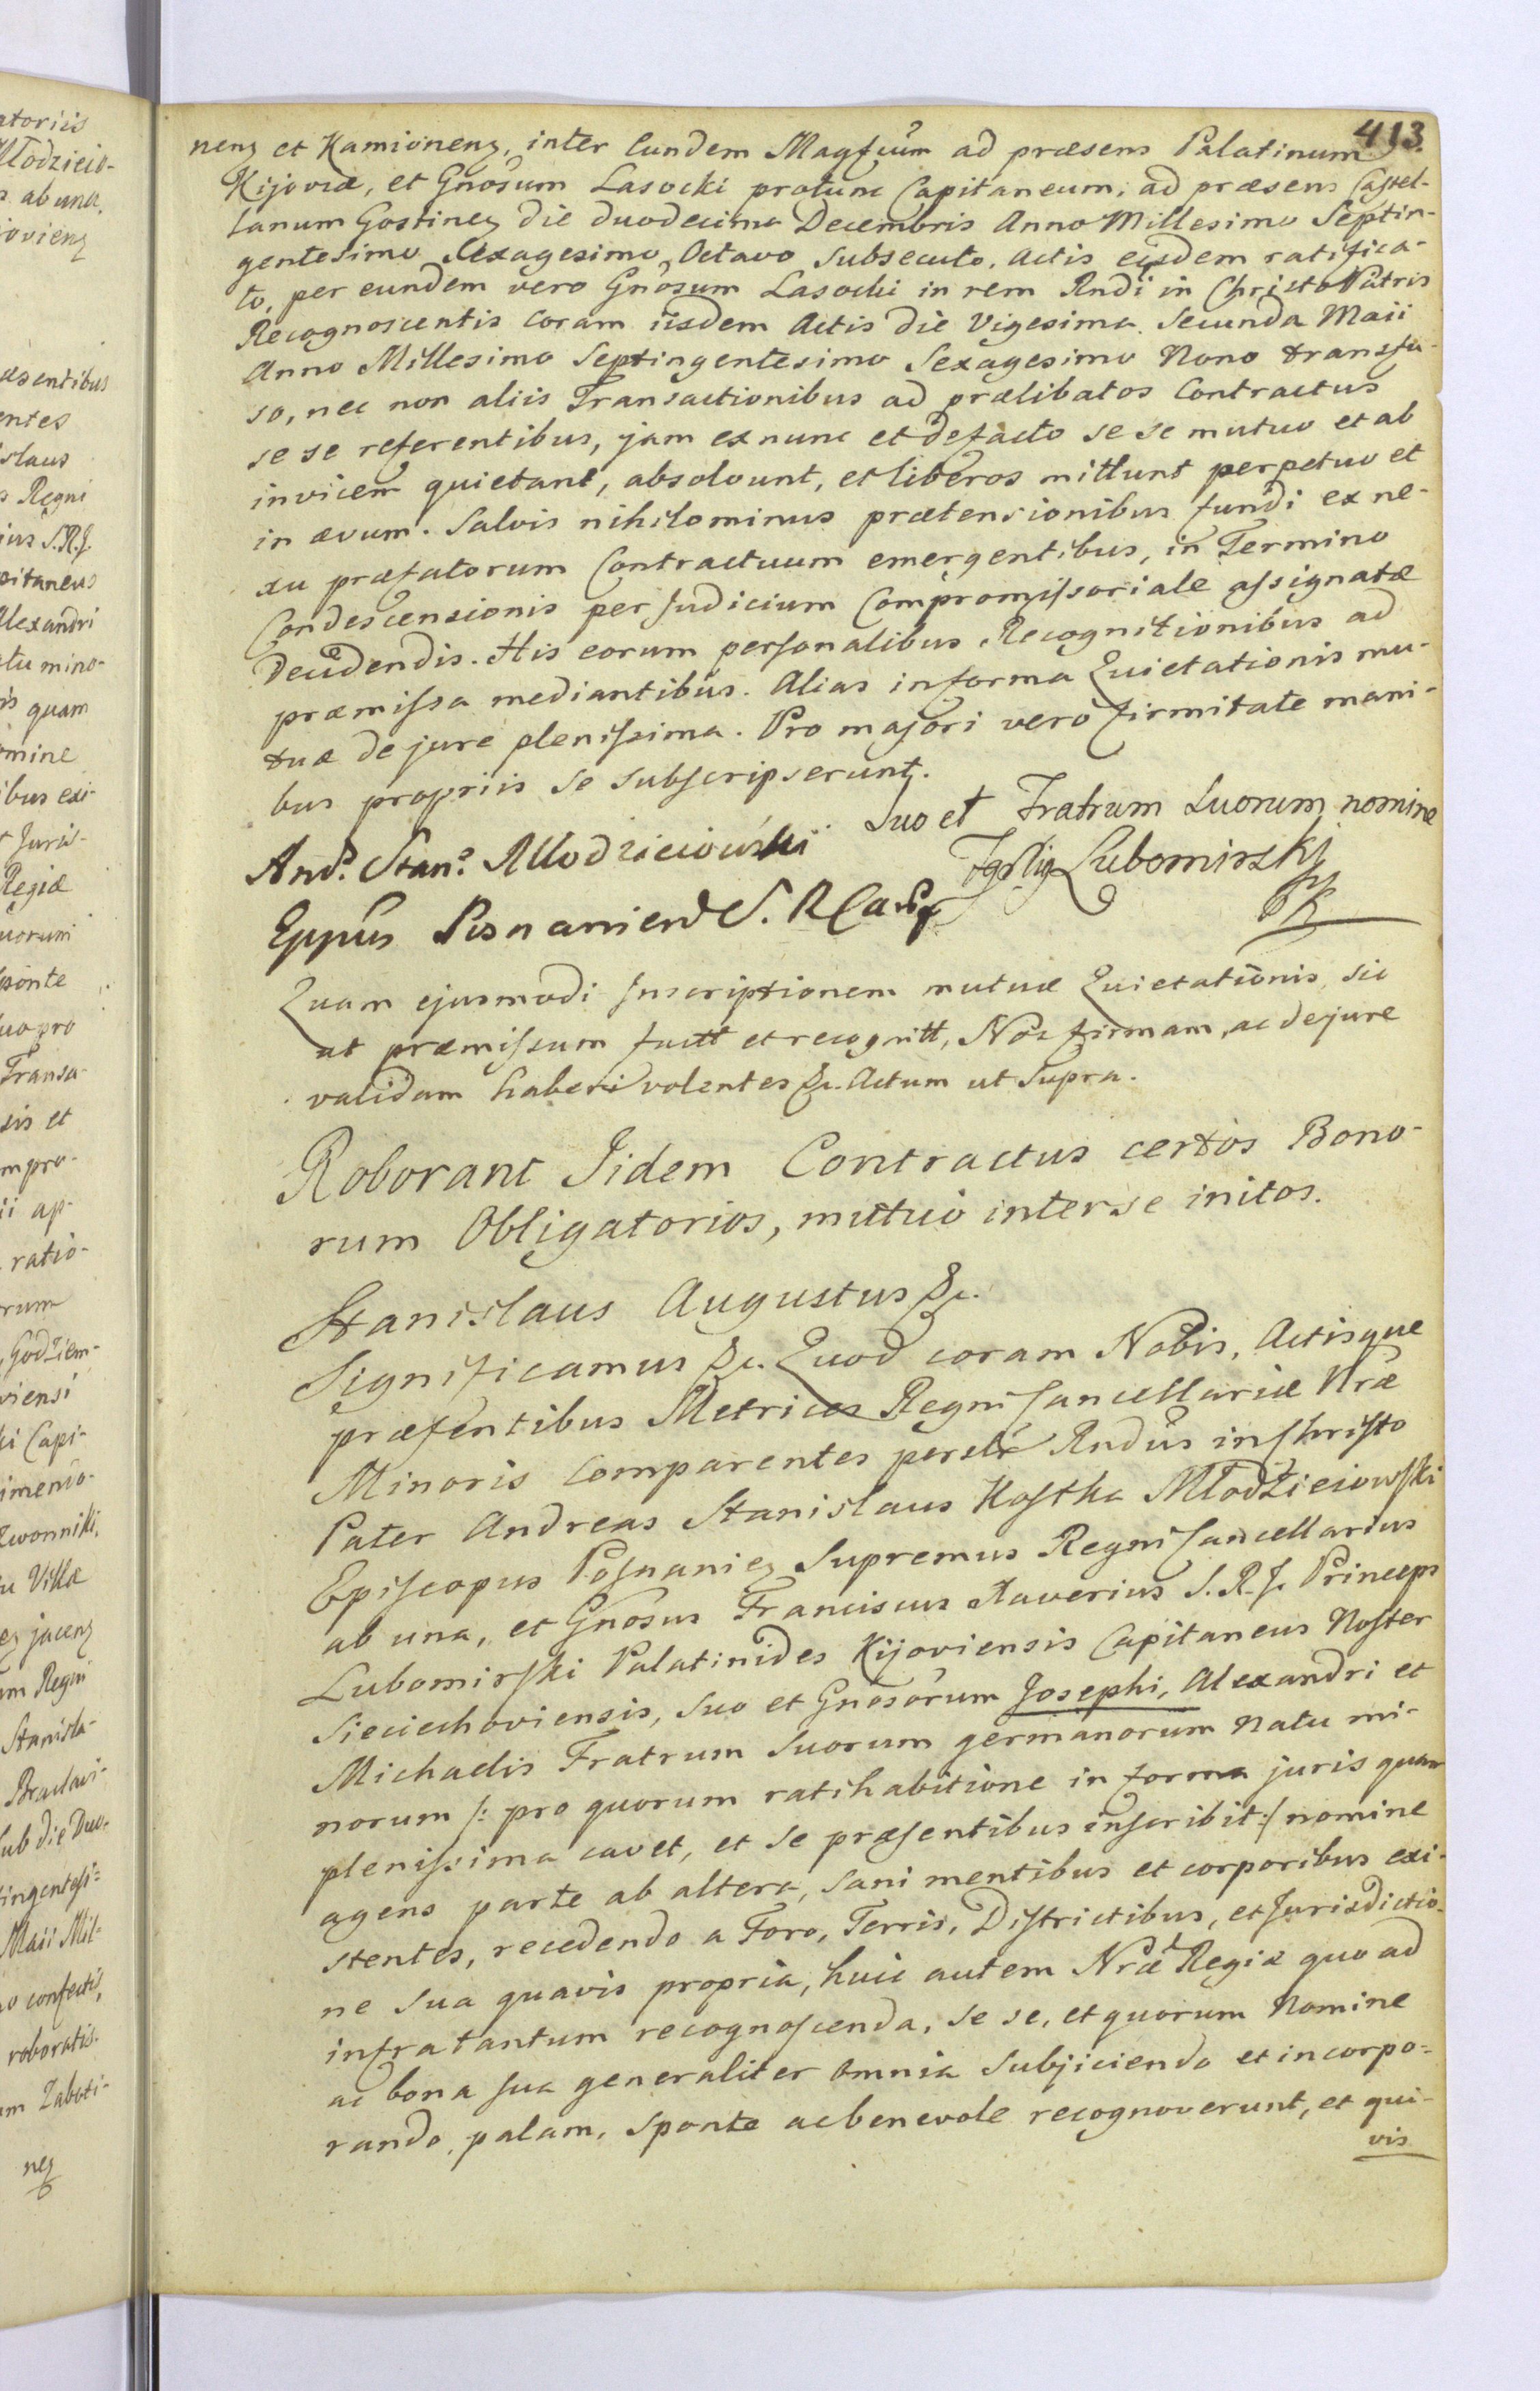 413.
nens et Kamionens, inter Eundem Magfcum ad præsens Palatinum
Kijoviæ, et Gnosum Lasocki protunc Capitaneum, ad præsens Castel-
lanum Gostinens die duodecima Decembris Anno Millesimo Septin-
gentesimo Sexagesimo Octavo Subsecuto, Actis eisdem ratifica-
to, per eundem vero Gnosum Lasocki in rem Rndi in Christo Patris
Recognoscentis coram iisdem Actis die Vigesima Secunda Maii
Anno Millesimo Septingentesimo Sexagesimo Nono transfu-
so, nec non aliis Transactionibus ad prælibatos Contractus
se se referentibus, jam exnunc et defacto se se mutuo et ab
invicem quietant, absolvunt, et liberos mittunt perpetuo et
in ævum. Salvis nihilominus prætensionibus fundi ex ne-
xu præfatorum Contractuum emergentibus, in Termino
Condescensionis per Judicium Compromissoriale assignatæ
decidendis. His eorum personalibus Recognitionibus ad
præmissa mediantibus. Alias in forma Quietationis mu-
tuæ de jure plenissima. Pro majori vero firmitate mani-
bus propriis se subscripserunt.
Suo et Fratrum Suorum nomine
And. Stan. Młodzieiowski
Lubomirski
Eppus Posnaniens S. R Canc
Quam ejusmodi Inscriptionem mutuæ Quietationis, sic
ut præmissum fuitt et recognitt, Nos firmam, ac dejure
validam haberi volentes &c. Actum ut Supra.
Roborant Iidem Contractus certos Bono-
rum Obligatorios, mutuo inter se initos.
Stanislaus Augustus &c.
Significamus &c. Quod coram Nobis, Actisque
præsentibus Metrices Regni Cancellariæ Nræ
Minoris comparentes perslr Rndus in Christo
Pater Andreas Stanislaus Kostka Młodzieiowski
Episcopus Posnaniens Supremus Regni Cancellarius
ab una, et Gnosus Franciscus Xaverius S. R. I. Princeps
Lubomirski Palatinides Kijoviensis Capitaneus Noster
Sieciechoviensis, suo et Gnosorum Josephi, Alexandri et
Michaelis Fratrum Suorum germanorum natu mi-
norum /: pro quorum ratihabitione in forma juris quam
plenissima cavet, et se præsentibus inscribit :/ nomine
agens parte ab altera, sani mentibus et corporibus exi-
stentes, recedendo a Foro, Terris, Districtibus, et Jurisdictio-
ne sua quavis propria, huic autem Nræ Regiæ quo ad
infra tantum recognoscenda, se se, et quorum Nomine
ac bona sua generaliter omnia subjiciendo et incorpo-
rando, palam, sponte ac benevole recognoverunt, et qui-
vis